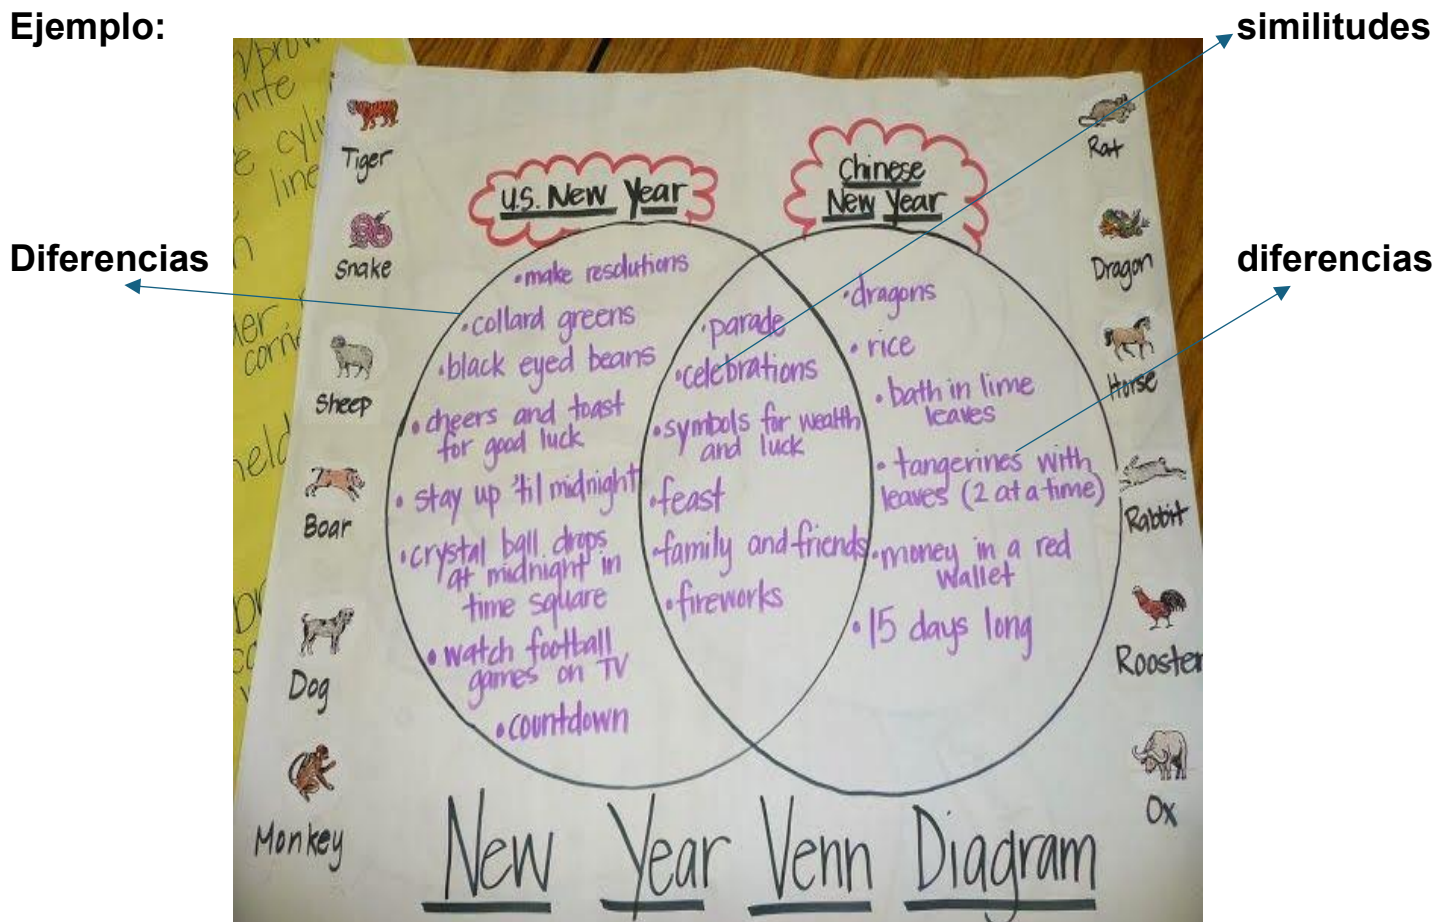 Ejemplo:
similitudes
Diferencias
diferencias
Tiger
Snake
Sheep
Boar
Dog
Monkey
U.S. New Year
• make resolutions
• collard greens
• black eyed beans
• cheers and toast
for good luck
• stay up 'til midnight
• crystal ball drops
at midnight in
time square
• watch football
games on TV
• countdown
• parade
• celebrations
• symbols for wealth
and luck
• feast
• family and friends
• fireworks
Chinese
New Year
• dragons
• rice
• bath in lime
leaves
• tangerines with
leaves (2 at a time)
• money in a red
wallet
• 15 days long
Rat
Dragon
Horse
Rabbit
Rooster
Ox
New Year Venn Diagram